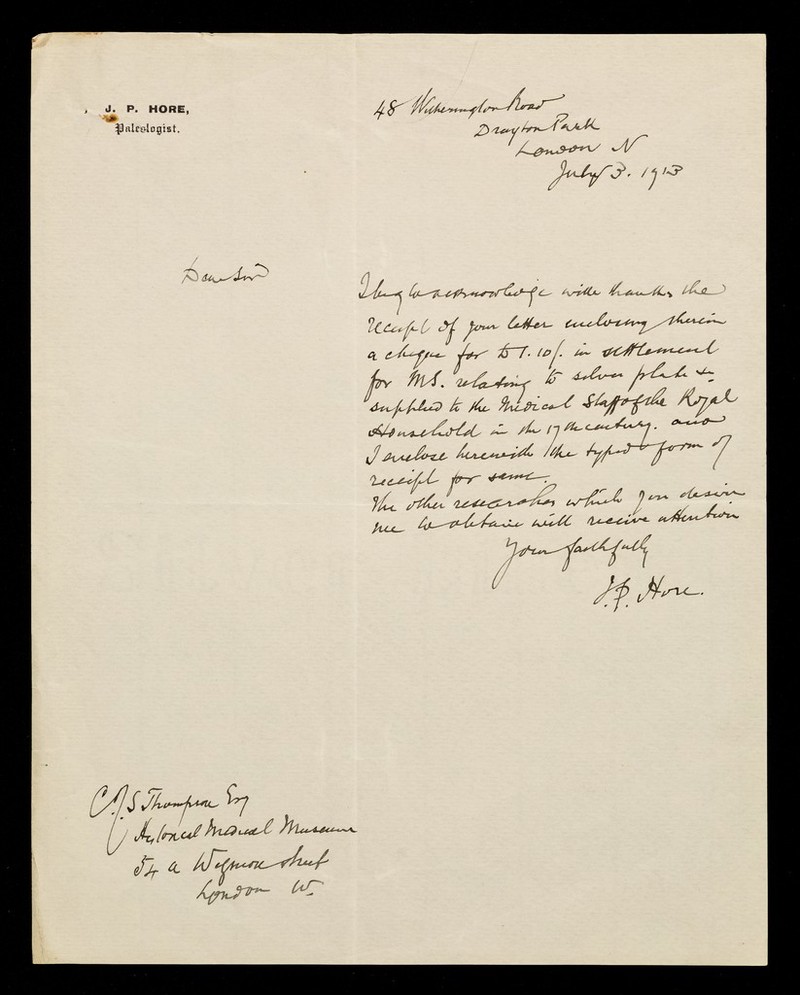 J. P. HORE,
Paleologist.
48 Witherington Road
Drayton Park
London N
July 3. 1913
Dear Sir
I beg to acknowledge with thanks the
receipt of your letter enclosing therein
a cheque for £1.10/. in settlement
for MS. relating to silver plate &c
supplied to the Medical Staff of the Royal
Household in the 17th century. and
I enclose herewith the typed form of
receipt for same.
The other researches which you desire
me to obtain will receive attention
Yours faithfully
J.P. Hore.
C.J.S Thompson Esq
Historical Medical Museum
54 a Wigmore street
London W.